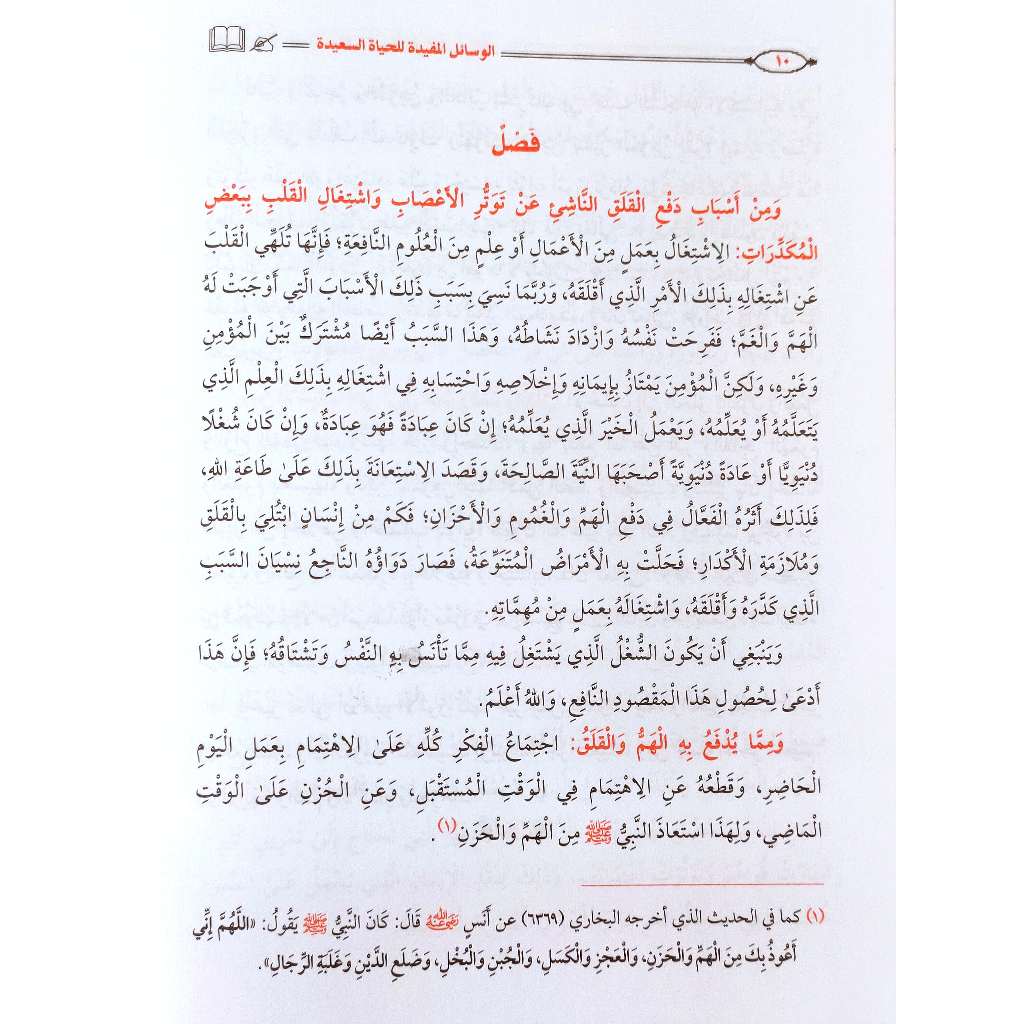 ١٠ الوسائل المفيدة للحياة السعيدة
فَصْلٌ
وَمِنْ أَسْبَابِ دَفْعِ الْقَلَقِ النَّاشِئِ عَنْ تَوَتُّرِ الْأَعْصَابِ وَاشْتِغَالِ الْقَلْبِ بِبَعْضِ
الْمُكَدِّرَاتِ: الِاشْتِغَالُ بِعَمَلٍ مِنَ الْأَعْمَالِ أَوْ عِلْمٍ مِنَ الْعُلُومِ النَّافِعَةِ؛ فَإِنَّهَا تُلَهِّي الْقَلْبَ
عَنِ اشْتِغَالِهِ بِذَلِكَ الْأَمْرِ الَّذِي أَقْلَقَهُ، وَرُبَّمَا نَسِيَ بِسَبَبِ ذَلِكَ الْأَسْبَابَ الَّتِي أَوْجَبَتْ لَهُ
الْهَمَّ وَالْغَمَّ؛ فَفَرِحَتْ نَفْسُهُ وَازْدَادَ نَشَاطُهُ، وَهَذَا السَّبَبُ أَيْضًا مُشْتَرَكٌ بَيْنَ الْمُؤْمِنِ
وَغَيْرِهِ، وَلَكِنَّ الْمُؤْمِنَ يَمْتَازُ بِإِيمَانِهِ وَإِخْلَاصِهِ وَاحْتِسَابِهِ فِي اشْتِغَالِهِ بِذَلِكَ الْعِلْمِ الَّذِي
يَتَعَلَّمُهُ أَوْ يُعَلِّمُهُ، وَيَعْمَلُ الْخَيْرَ الَّذِي يُعَلِّمُهُ؛ إِنْ كَانَ عِبَادَةً فَهُوَ عِبَادَةٌ، وَإِنْ كَانَ شُغْلًا
دُنْيَوِيًّا أَوْ عَادَةً دُنْيَوِيَّةً أَصْحَبَهَا النِّيَّةَ الصَّالِحَةَ، وَقَصَدَ الِاسْتِعَانَةَ بِذَلِكَ عَلَىٰ طَاعَةِ اللهِ،
فَلِذَلِكَ أَثَرُهُ الْفَعَّالُ فِي دَفْعِ الْهَمِّ وَالْغُمُومِ وَالْأَحْزَانِ؛ فَكَمْ مِنْ إِنْسَانٍ ابْتُلِيَ بِالْقَلَقِ
وَمُلَازَمَةِ الْأَكْدَارِ؛ فَحَلَّتْ بِهِ الْأَمْرَاضُ الْمُتَنَوِّعَةُ، فَصَارَ دَوَاؤُهُ النَّاجِعُ نِسْيَانَ السَّبَبِ
الَّذِي كَدَّرَهُ وَأَقْلَقَهُ، وَاشْتِغَالَهُ بِعَمَلٍ مِنْ مُهِمَّاتِهِ.
وَيَنْبَغِي أَنْ يَكُونَ الشُّغْلُ الَّذِي يَشْتَغِلُ فِيهِ مِمَّا تَأْنَسُ بِهِ النَّفْسُ وَتَشْتَاقُهُ؛ فَإِنَّ هَذَا
أَدْعَىٰ لِحُصُولِ هَذَا الْمَقْصُودِ النَّافِعِ، وَاللهُ أَعْلَمُ.
وَمِمَّا يُدْفَعُ بِهِ الْهَمُّ وَالْقَلَقُ: اجْتِمَاعُ الْفِكْرِ كُلِّهِ عَلَىٰ الِاهْتِمَامِ بِعَمَلِ الْيَوْمِ
الْحَاضِرِ، وَقَطْعُهُ عَنِ الِاهْتِمَامِ فِي الْوَقْتِ الْمُسْتَقْبَلِ، وَعَنِ الْحُزْنِ عَلَىٰ الْوَقْتِ
الْمَاضِي، وَلِهَذَا اسْتَعَاذَ النَّبِيُّ ﷺ مِنَ الْهَمِّ وَالْحَزَنِ(١).
(١) كما في الحديث الذي أخرجه البخاري (٦٣٦٩) عن أَنَسٍ رَضِيَ اللهُ عَنْهُ قَالَ: كَانَ النَّبِيُّ ﷺ يَقُولُ: «اللَّهُمَّ إِنِّي
أَعُوذُ بِكَ مِنَ الْهَمِّ وَالْحَزَنِ، وَالْعَجْزِ وَالْكَسَلِ، وَالْجُبْنِ وَالْبُخْلِ، وَضَلَعِ الدَّيْنِ وَغَلَبَةِ الرِّجَالِ».